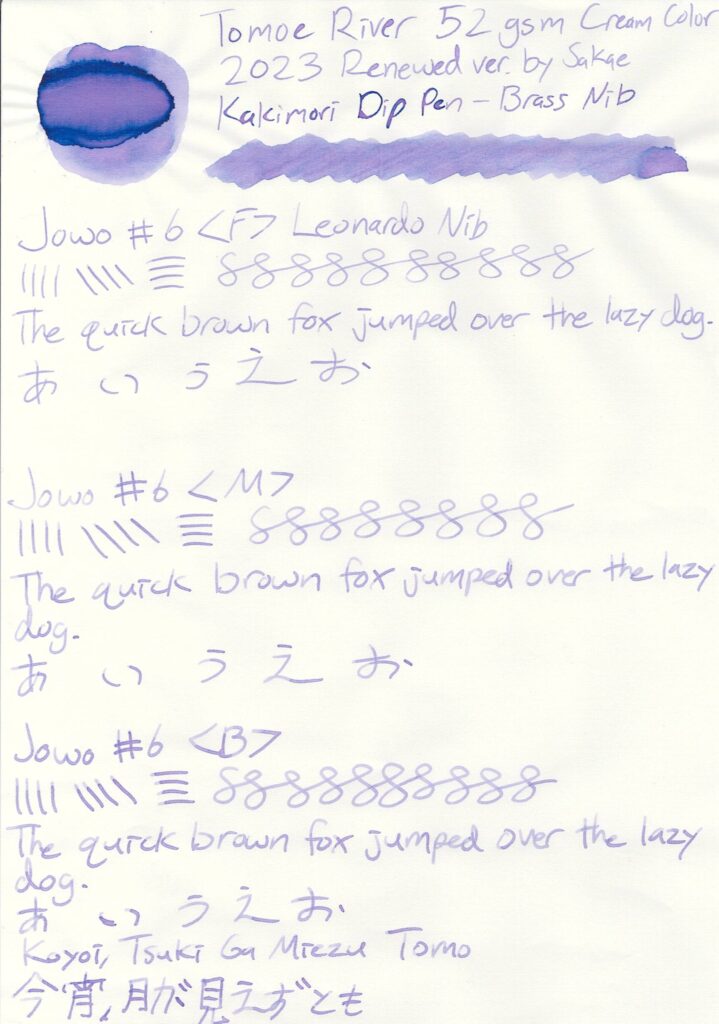 Tomoe River 52 gsm Cream Color
2023 Renewed ver. by Sakae
Kakimori Dip Pen - Brass Nib
Jowo #6 <F> Leonardo Nib
The quick brown fox jumped over the lazy dog.
あ い う え お
Jowo #6 <M>
The quick brown fox jumped over the lazy
dog.
あ い う え お
Jowo #6 <B>
The quick brown fox jumped over the lazy
dog.
あ い う え お
Koyoi, Tsuki Ga Miezu Tomo
今宵, 月が見えずとも